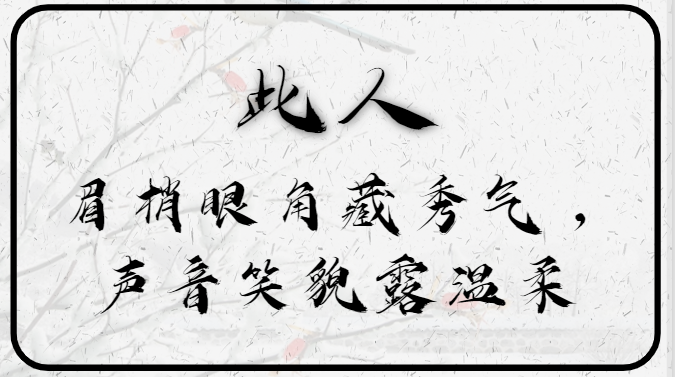 此人
眉捎眼角藏秀气，
声音笑貌露温柔